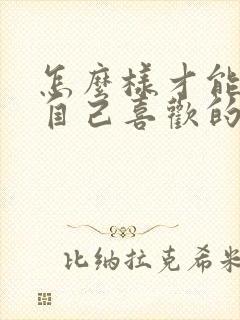 怎麼樣才能
自己喜歡的
比纳拉克希米